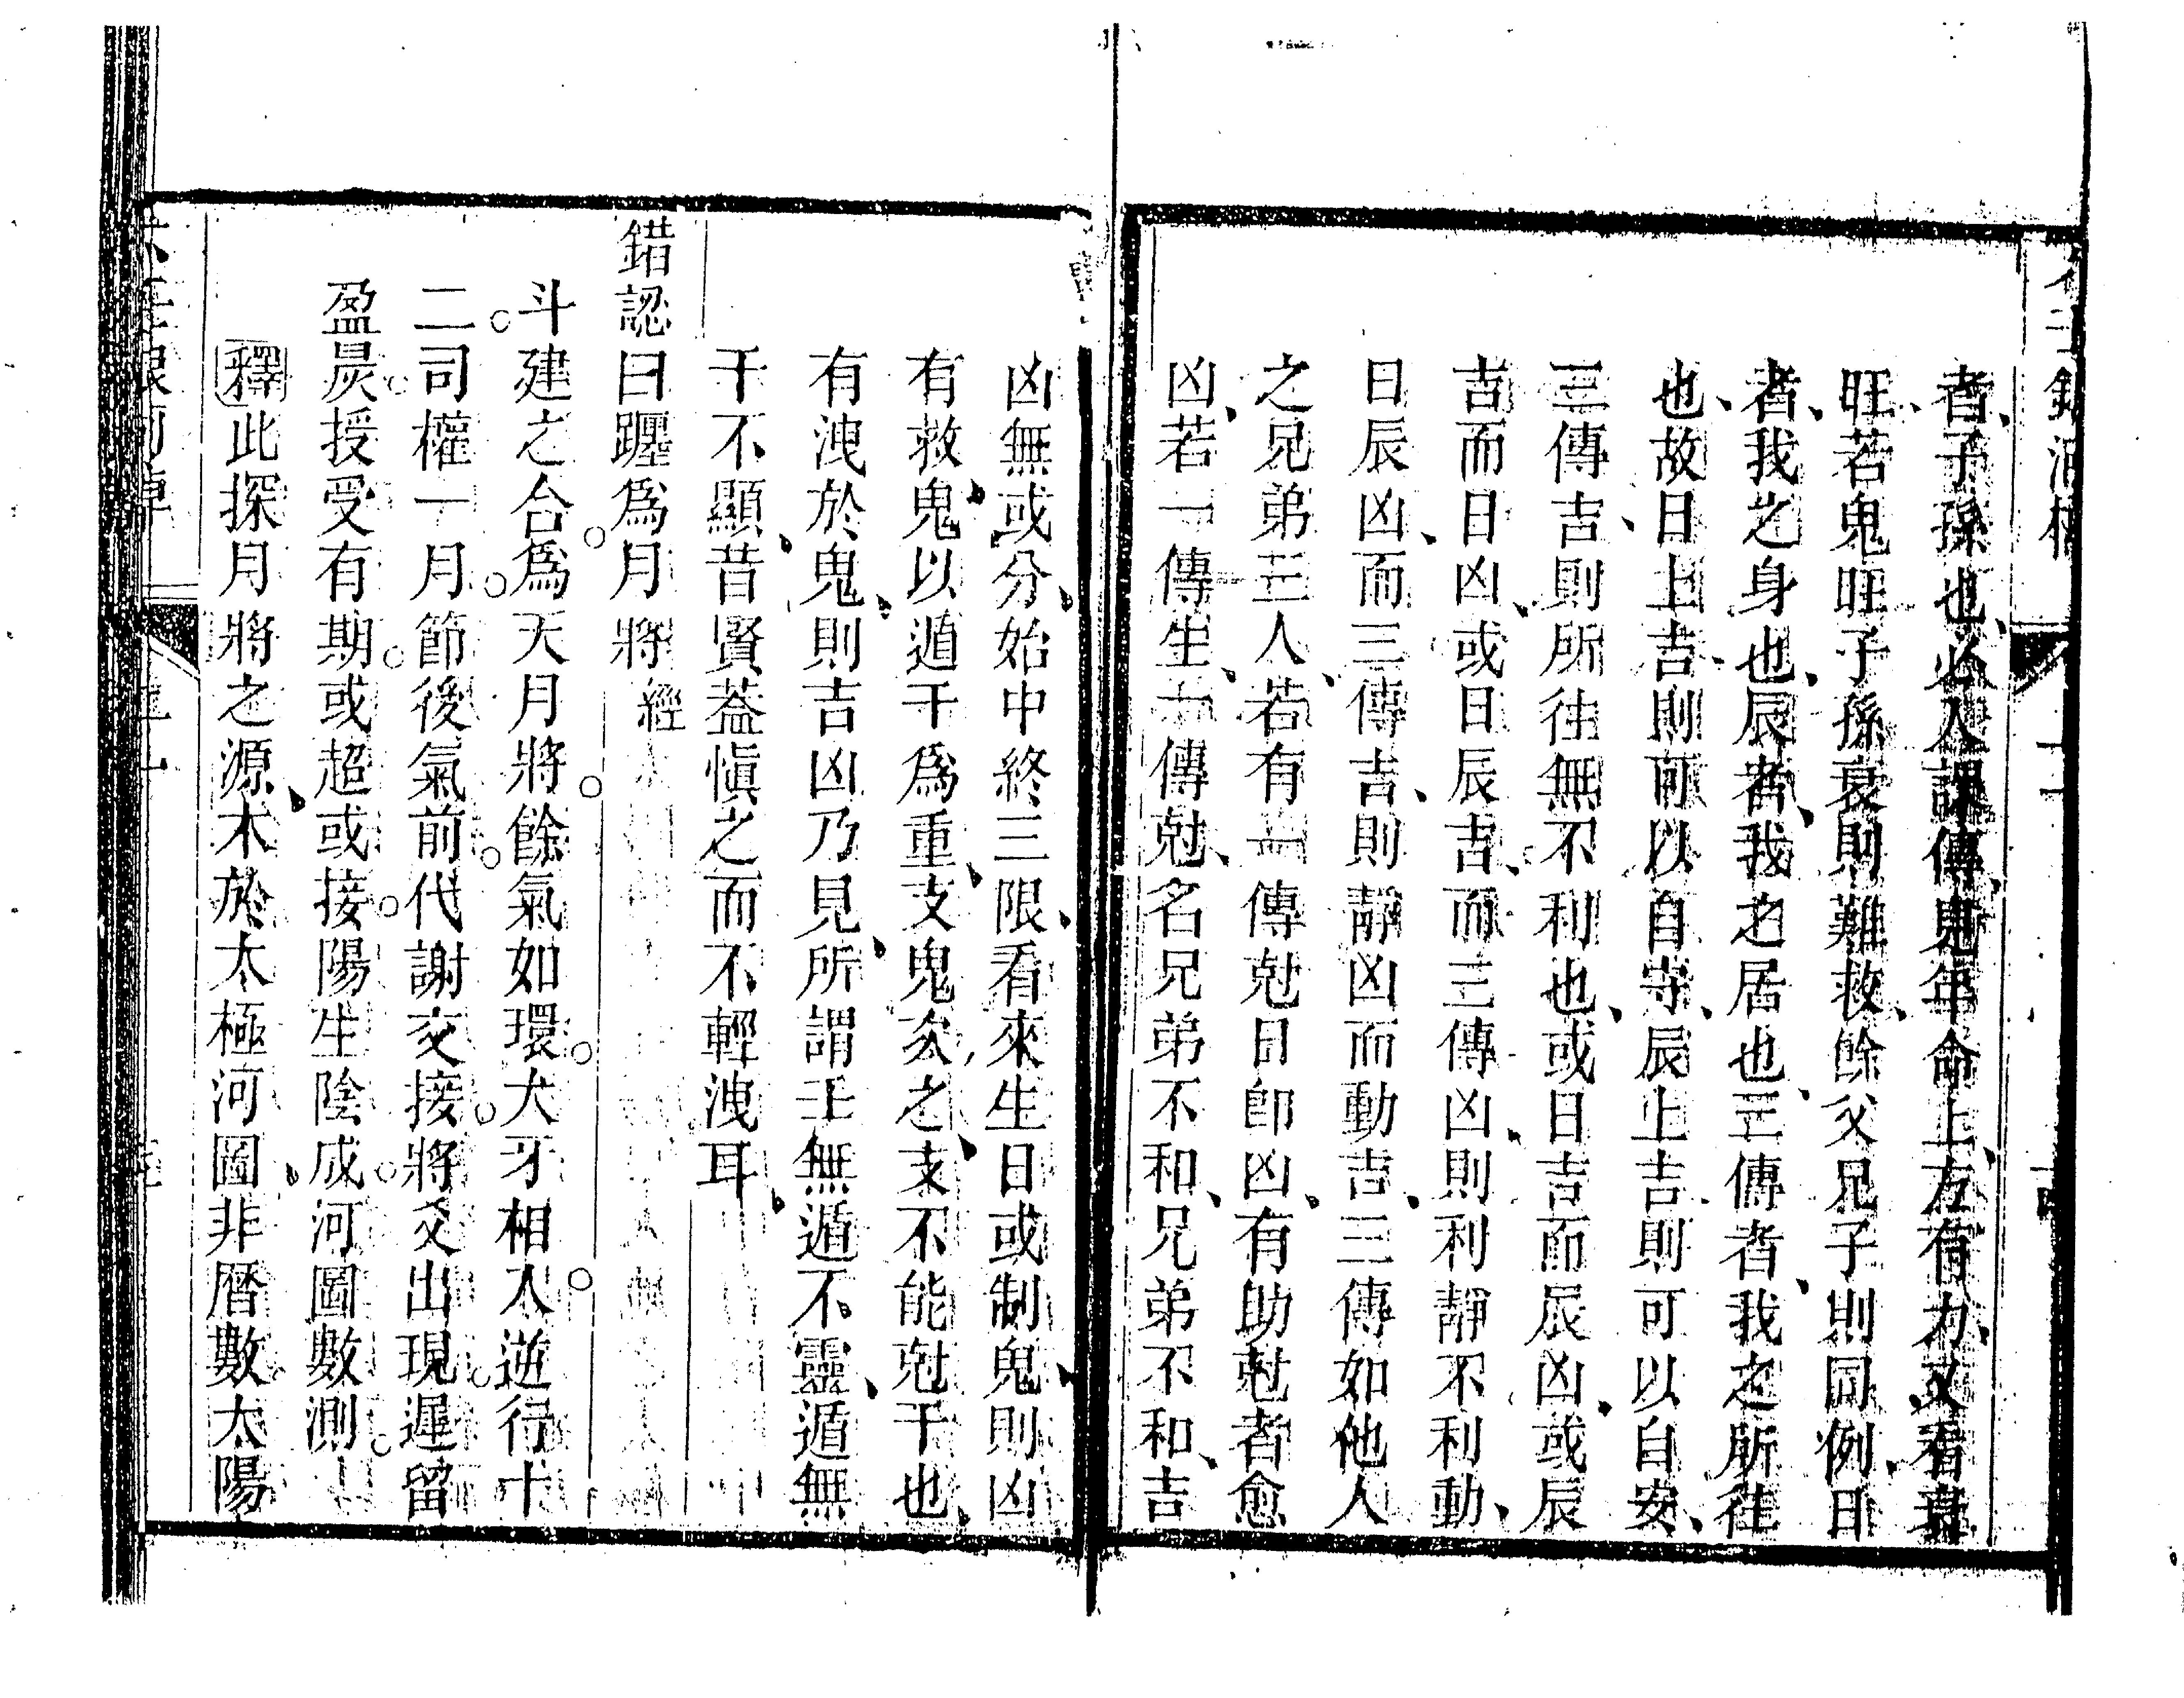 者子孫也必入課傳鬼年命上方有力又看衰
旺若鬼旺子孫衰則難救餘父兄子則同例日
者我之身也辰者我之居也三傳者我之所往
也故日上吉則可以自守辰上吉則可以自安
三傳吉則所往無不利也或日吉而辰凶或辰
吉而日凶或日辰吉而三傳凶則利靜不利動
日辰凶而三傳吉則靜凶而動吉三傳如他人
之兄弟三人若有一傳尅日卽凶有助尅者愈
凶若一傳生一傳尅名兄弟不和兄弟不和吉
凶無或分始中終三限看來生日或制鬼則凶
有救鬼以遁干爲重支鬼次之支不能尅干也
有洩於鬼則吉凶乃見所謂壬無遁不靈遁無
干不顯昔賢葢愼之而不輕洩耳
錯認日躔爲月將經
斗建之合爲天月將餘氣如環犬牙相入逆行十
二司權一月節後氣前代謝交接將爻出現遲留
盈昃授受有期或超或接陽生陰成河圖數測
釋此探月將之源本於太極河圖非曆數太陽